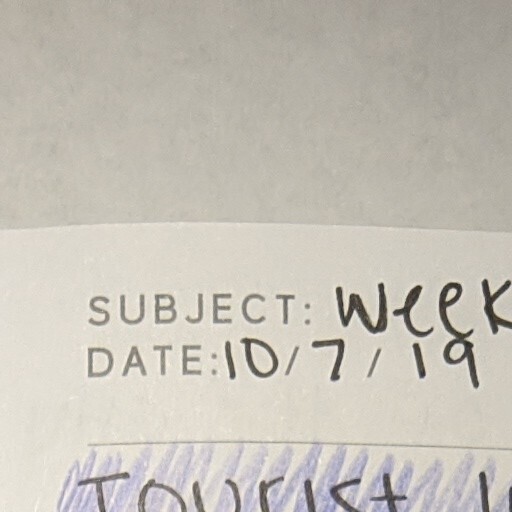 SUBJECT: Week
DATE: 10/7/19
Tourist